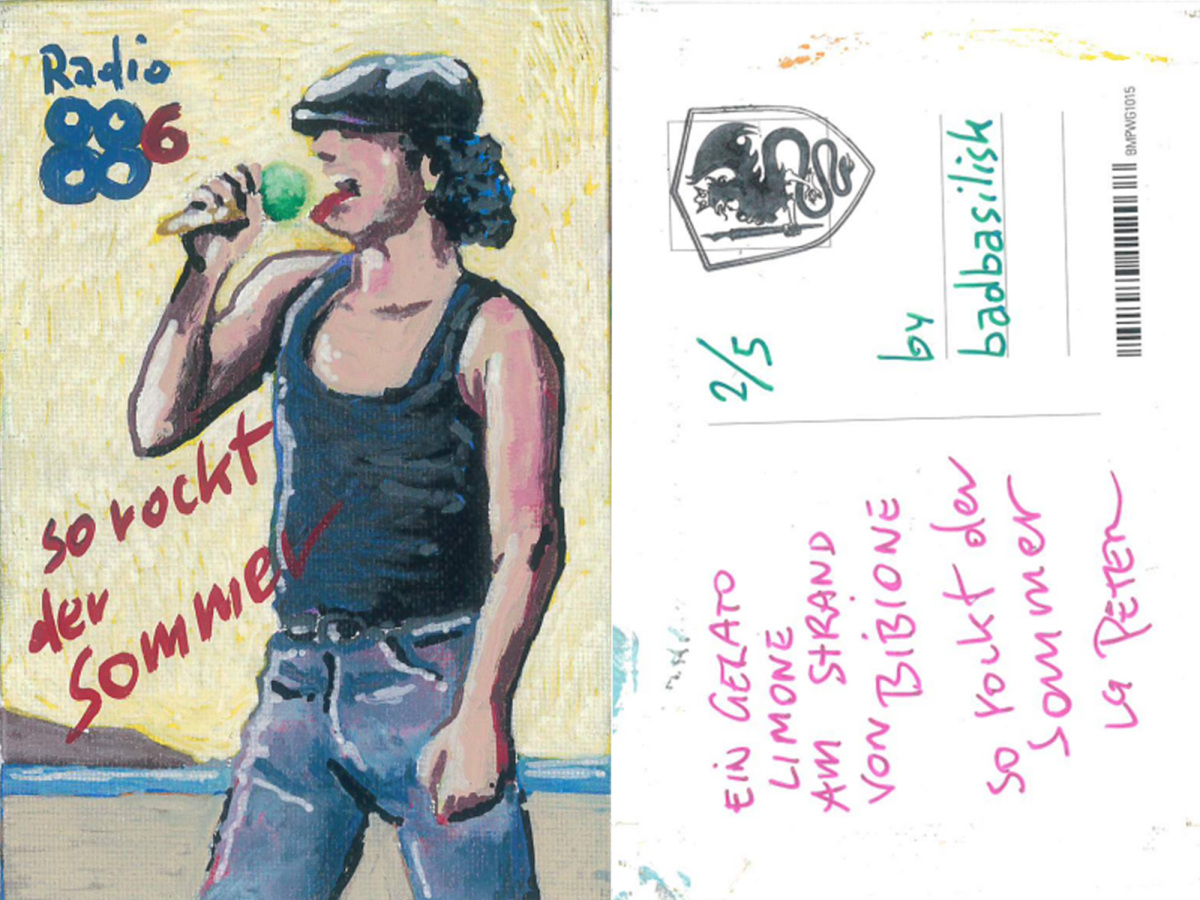 Radio
88
88 6
so rockt
der
Sommer
BMPWG1015
2/5
by
badbasilisk
EIN GELATO
LIMONE
AM STRAND
VON BIBIONE
so rockt der
Sommer
LG PETER